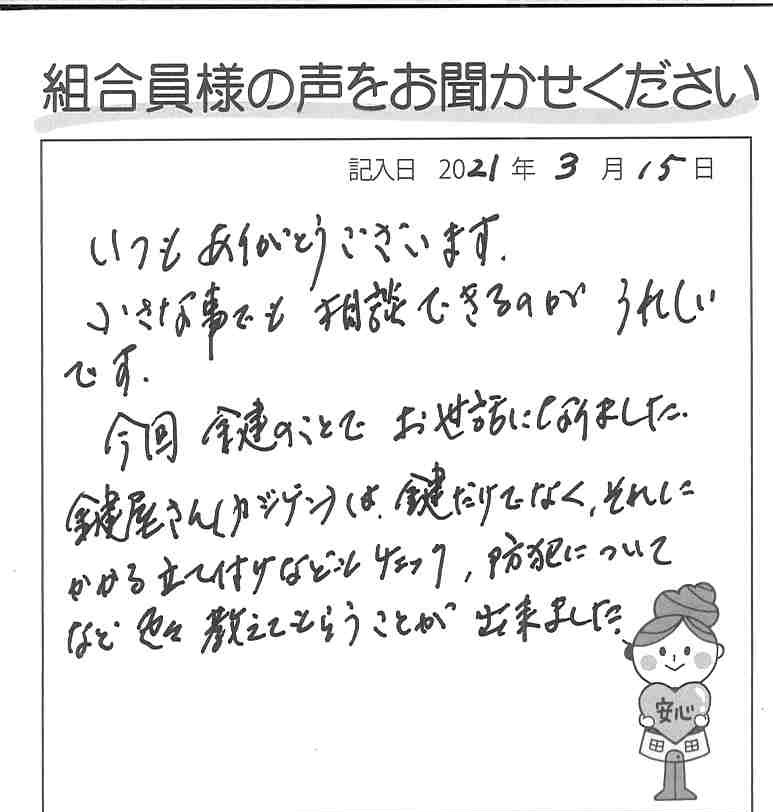 組合員様の声をお聞かせください
記入日 2021年 3月 15日
いつもありがとうございます.
小さな事でも 相談できるのが うれしい
です.
今回 鍵のことで お世話になりました.
鍵屋さん(カジゲン)は、鍵だけでなく、それに
かかる立て付けなどもチェック, 防犯について
など 色々 教えてもらうことが 出来ました.
安心